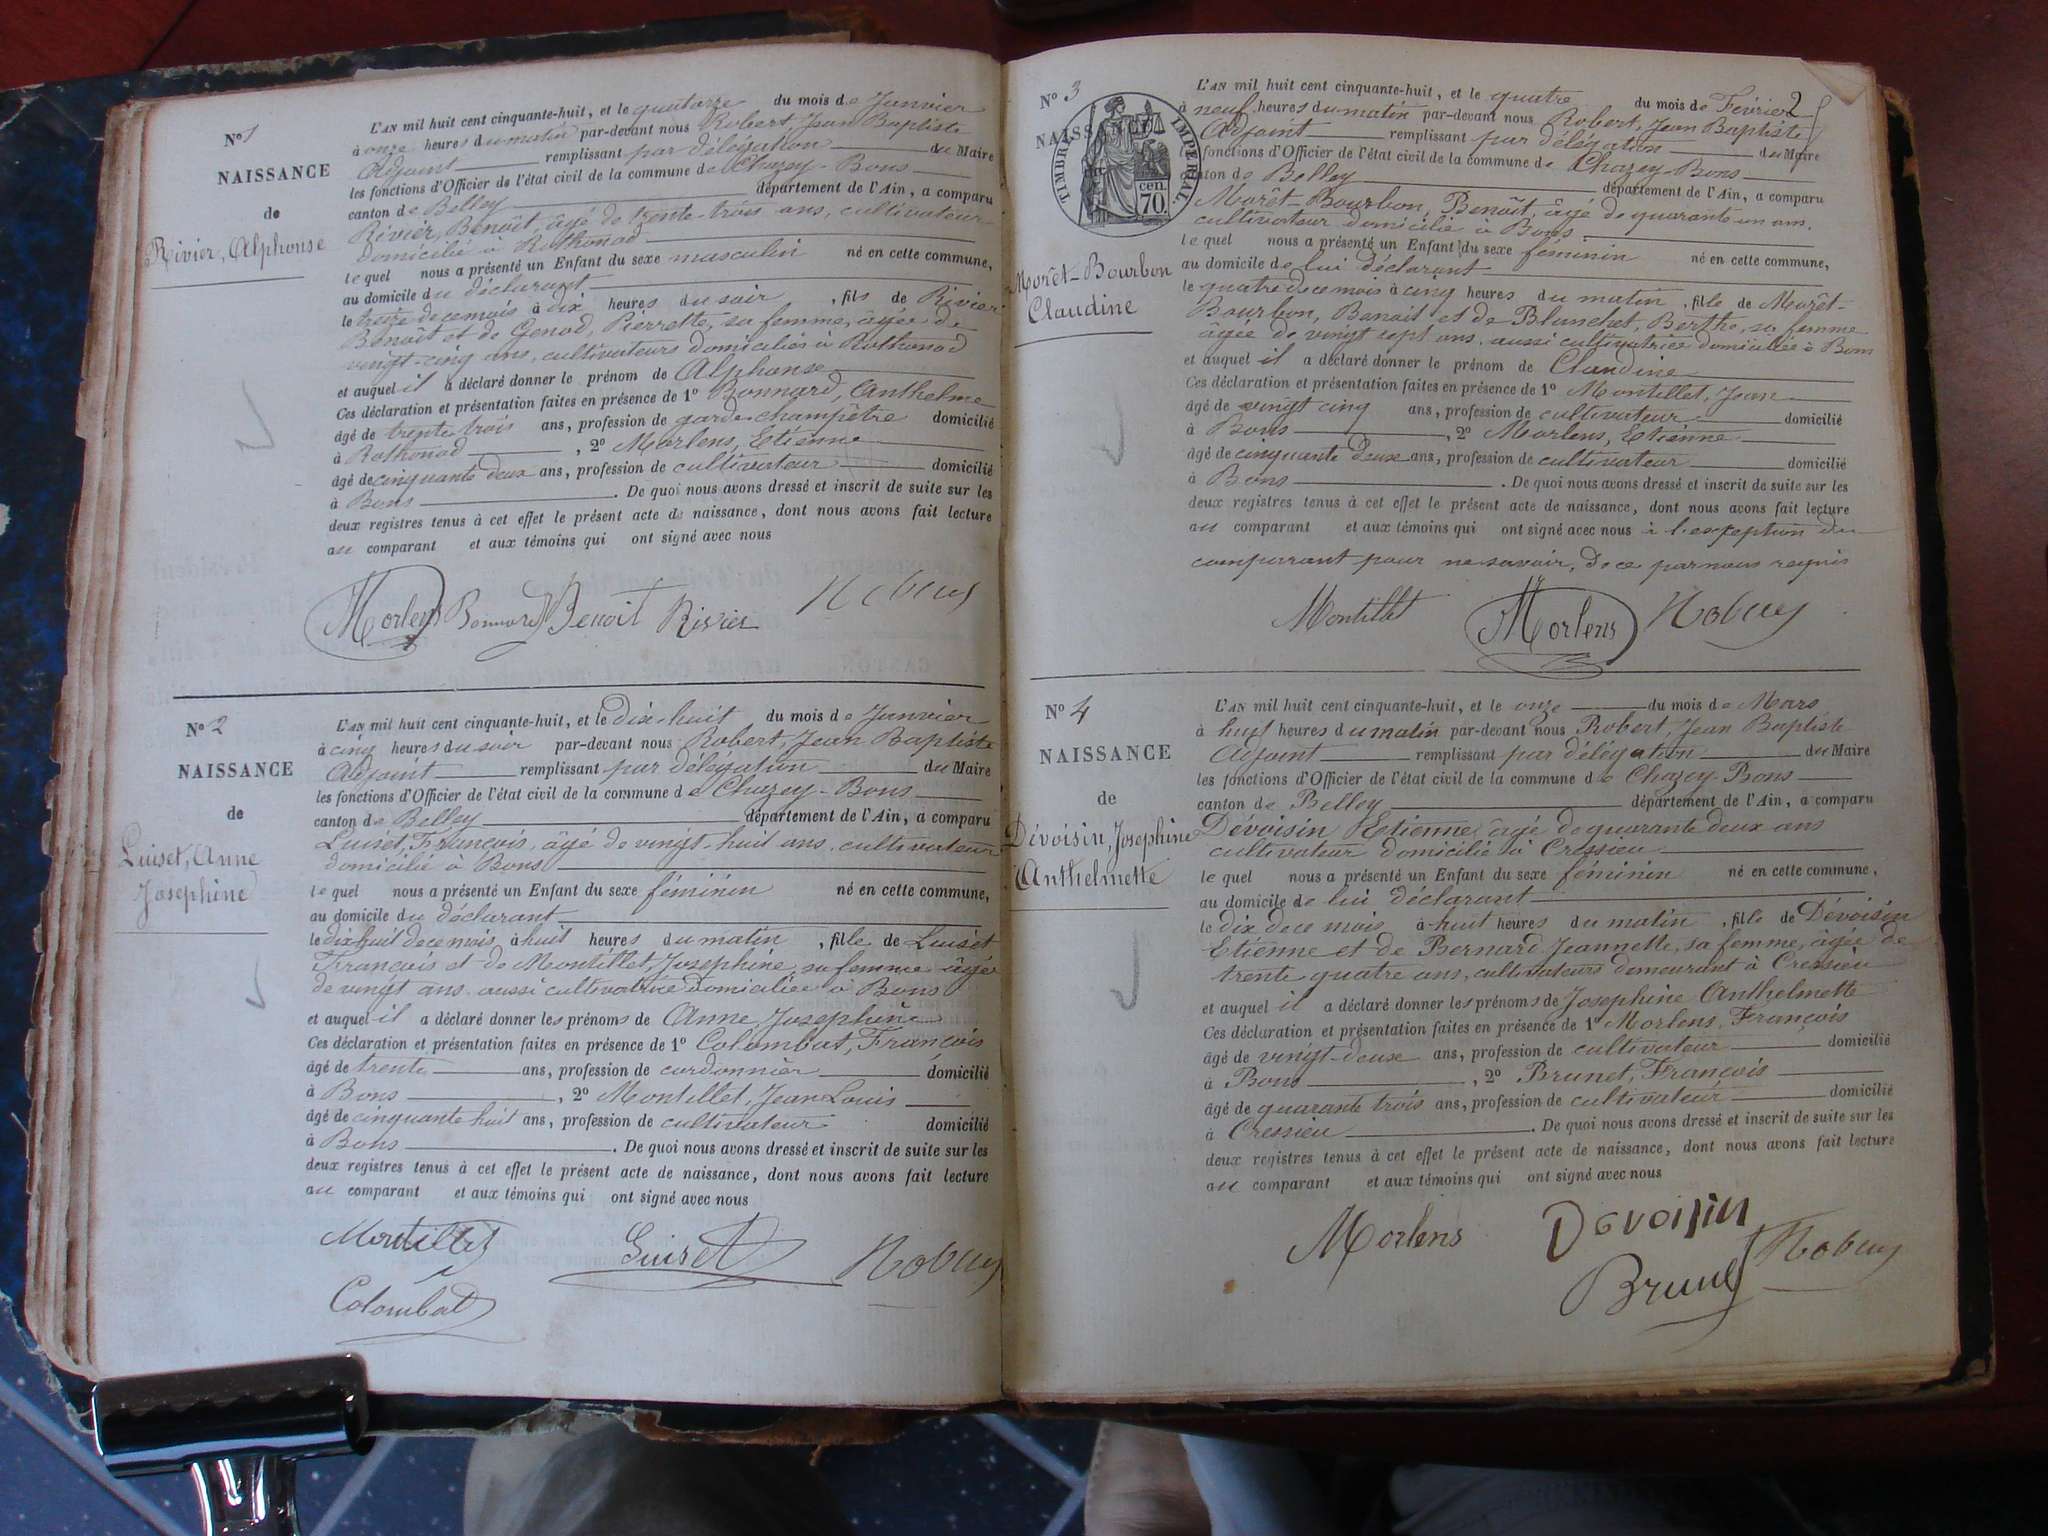 N° 1
NAISSANCE
de
Rivier, Alphonse
L'AN mil huit cent cinquante-huit, et le quatorze du mois de Janvier
à onze heures du matin par-devant nous Robert, Jean Baptiste
Adjoint remplissant par délégation du Maire
les fonctions d'Officier de l'état civil de la commune de Chazey-Bons
canton de Belley département de l'Ain, a comparu
Rivier, Benoît, âgé de trente-trois ans, cultivateur
domicilié à Rothonod
le quel nous a présenté un Enfant du sexe masculin né en cette commune,
au domicile du déclarant
le treize de ce mois à dix heures du soir, fils de Rivier
Benoît et de Genod, Pierrette, sa femme, âgée de
vingt cinq ans, cultivateurs domiciliés à Rothonod
et auquel il a déclaré donner le prénom de Alphonse
Ces déclaration et présentation faites en présence de 1° Bonnard, Anthelme
âgé de trente trois ans, profession de garde-champêtre domicilié
à Rothonod, 2° Morlens, Etienne
âgé de cinquante deux ans, profession de cultivateur domicilié
à Bons. De quoi nous avons dressé et inscrit de suite sur les
deux registres tenus à cet effet le présent acte de naissance, dont nous avons fait lecture
au comparant et aux témoins qui ont signé avec nous
Morlens Bonnard Benoit Rivier
N° 2
NAISSANCE
de
Luiset, Anne
Josephine
L'AN mil huit cent cinquante-huit, et le dix-huit du mois de Janvier
à cinq heures du soir par-devant nous Robert, Jean Baptiste
Adjoint remplissant par délégation du Maire
les fonctions d'Officier de l'état civil de la commune de Chazey-Bons
canton de Belley département de l'Ain, a comparu
Luiset, François, âgé de vingt-huit ans, cultivateur
domicilié à Bons
le quel nous a présenté un Enfant du sexe féminin né en cette commune,
au domicile du déclarant
le dix huit de ce mois à huit heures du matin, fille de Luiset
François et de Montillet, Josephine, sa femme âgée
de vingt ans aussi cultivatrice domiciliée à Bons
et auquel il a déclaré donner les prénoms de Anne Josephine
Ces déclaration et présentation faites en présence de 1° Colombat, François
âgé de trente ans, profession de cordonnier domicilié
à Bons, 2° Montillet, Jean Louis
âgé de cinquante huit ans, profession de cultivateur domicilié
à Bons. De quoi nous avons dressé et inscrit de suite sur les
deux registres tenus à cet effet le présent acte de naissance, dont nous avons fait lecture
au comparant et aux témoins qui ont signé avec nous
Montillet Luiset
Colombat
2
N° 3
NAISSANCE
TIMBRE IMPERIAL
70 cen.
Morêt-Bourbon
Claudine
L'AN mil huit cent cinquante-huit, et le quatre du mois de Février
à neuf heures du matin par-devant nous Robert, Jean Baptiste
Adjoint remplissant par délégation du Maire
fonctions d'Officier de l'état civil de la commune de Chazey-Bons
canton de Belley département de l'Ain, a comparu
Morêt-Bourbon, Benoît, âgé de quarante un ans,
cultivateur domicilié à Bons
le quel nous a présenté un Enfant du sexe féminin né en cette commune,
au domicile de lui déclarant
le quatre de ce mois à cinq heures du matin, fille de Morêt-
Bourbon, Benoit et de Blanchet, Berthe, sa femme
âgée de vingt sept ans, aussi cultivatrice domiciliée à Bons
et auquel il a déclaré donner le prénom de Claudine
Ces déclaration et présentation faites en présence de 1° Montillet, Jean
âgé de vingt cinq ans, profession de cultivateur domicilié
à Bons, 2° Morlens, Etienne
âgé de cinquante deux ans, profession de cultivateur domicilié
à Bons. De quoi nous avons dressé et inscrit de suite sur les
deux registres tenus à cet effet le présent acte de naissance, dont nous avons fait lecture
au comparant et aux témoins qui ont signé avec nous à l'exeption du
comparant pour ne savoir, de ce par nous requis
Montillet Morlens
N° 4
NAISSANCE
de
Dévoisin, Josephine
Anthelmette
L'AN mil huit cent cinquante-huit, et le onze du mois de Mars
à huit heures du matin par-devant nous Robert, Jean Baptiste
Adjoint remplissant par délégation du Maire
les fonctions d'Officier de l'état civil de la commune de Chazey-Bons
canton de Belley département de l'Ain, a comparu
Dévoisin Etienne, âgé de quarante deux ans
cultivateur domicilié à Cressieu
le quel nous a présenté un Enfant du sexe féminin né en cette commune,
au domicile de lui déclarant
le dix de ce mois à huit heures du matin, fille de Dévoisin
Etienne et de Bernard Jeannette, sa femme, âgée de
trente quatre ans, cultivateurs demeurant à Cressieu
et auquel il a déclaré donner les prénoms de Josephine Anthelmette
Ces déclaration et présentation faites en présence de 1° Morlens, François
âgé de vingt-deux ans, profession de cultivateur domicilié
à Bons, 2° Brunet, François
âgé de quarante trois ans, profession de cultivateur domicilié
à Cressieu. De quoi nous avons dressé et inscrit de suite sur les
deux registres tenus à cet effet le présent acte de naissance, dont nous avons fait lecture
au comparant et aux témoins qui ont signé avec nous
Morlens Devoisin
Brunet